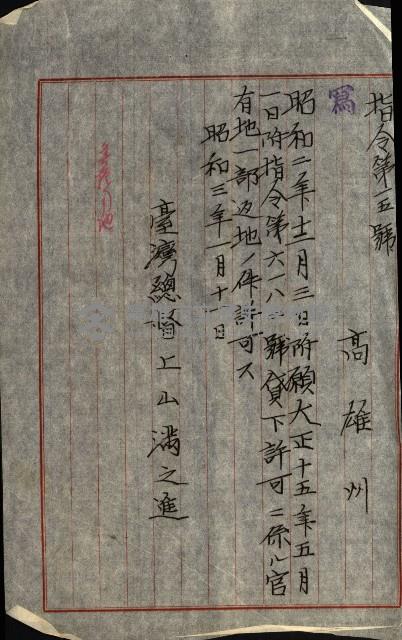 指令第一五號
寫
高雄州
昭和二年十二月三日附願大正十五年五月
一日附指令第六一八號貸下許可ニ係ル官
有地一部返地ノ件許可ス
昭和三年一月十一日
臺灣總督上山滿之進